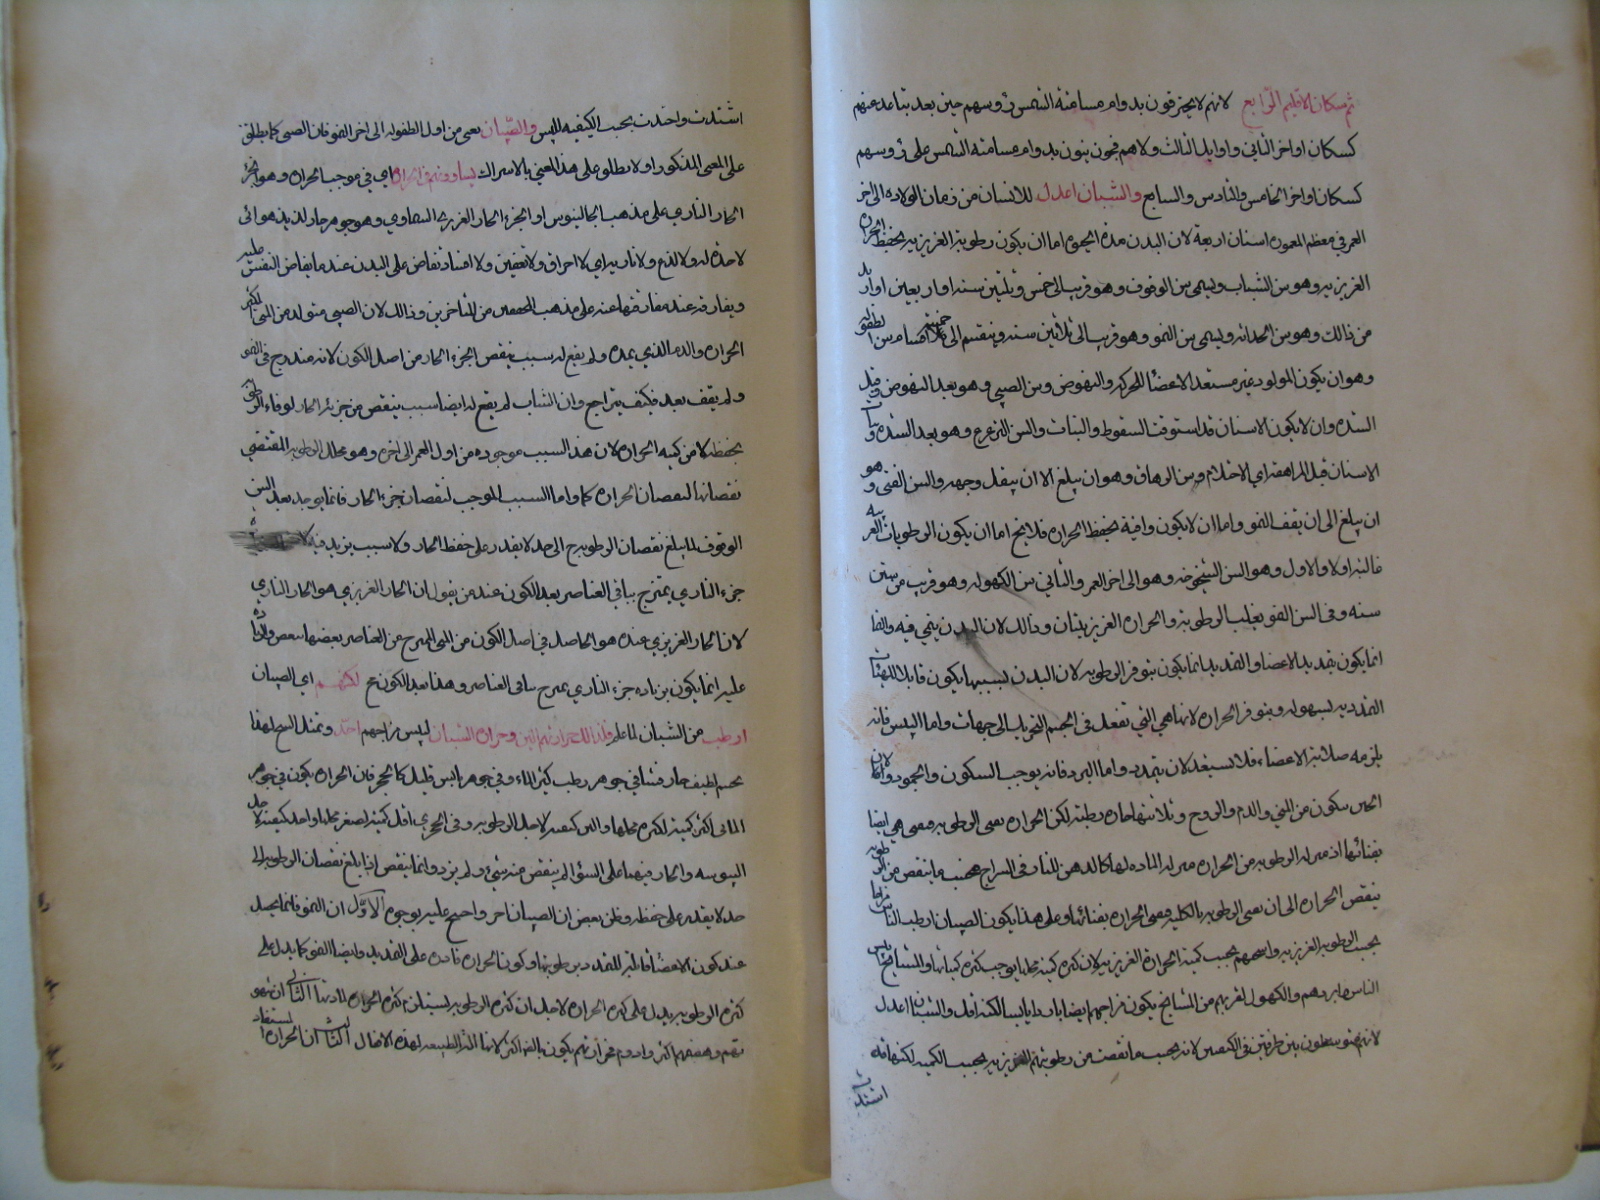 ثم سكان الاقليم الرابع لانهم لا يحترقون بدوام مسامتة الشمس رؤسهم حين بعد تباعد عنهم
كسكان اواخر الثاني واوايل الثالث ولا هم فجون نيون بدوام مسامتة الشمس على رؤسهم
كسكان اواخر الخامس والسادس والسابع والشبان اعدل للانسان من زمان الولاده الى اخر
العمر في معظم المعموره اسنان اربعة لان البدن مدة الحيوة اما ان يكون رطوبته الغريزيه بحفظ الحرارة
الغزيزيه وهو سن الشباب ويسمى سن الوقوف وهو قريب الى خمس وثلثين سنه او اربعين او ازيد
من ذالك وهو سن الحداثه ويسمى سن النمو وهو قريب الى ثلاثين سنه وينقسم الى خمسة اقسام سن الطفوله
وهو ان يكون المولود غير مستعد الاعضا للحركه والنهوض وسن الصبي وهو بعد النهوض وقبل
الشده وان لا يكون الاسنان قد استوفت السقوط والنبات والسن الترعرع وهو بعد الشده ونبات
الاسنان قبل المراهقة اي الاحتلام وسن الرهاق وهو ان يبلغ الا ان يبقل وجهه والسن الفتى وهو
ان يبلغ الى ان يقف النمو واما ان لا يكون وافية بحفظ الحراره فلا يخ اما ان يكون الرطوبات الغريبه
غالبة اولا والاول وهو السن الشيخوخه وهو الى اخر العمر والثاني سن الكهوله وهو قريب من ستين
سنه وفي السن النمو يغلب الرطوبه والحراره الغريزيتان وذالك لان البدن ينمي فيه والنما
انما يكون بتمديد الاعضا والتمديد انما يكون بتوفر الرطوبه لان البدن بسببها يكون قابلا للهيئات
التمدديه بسهوله وبتوفر الحراره لانها هي التي تفعل في الجسم التحريك الى جهات واما اليبس فانه
يلزمه صلابة الاعضاء فلا يستعد لان يتمدد واما البرد فانه يوجب السكون والجمود ولان
الجنين يتكون من المني والدم والروح وثلاثتها حاره رطبة لكن الحراره يفنى الرطوبه ويفنى هي ايضا
بفنائها اذ منزله الرطوبه من الحراره منزله الماده لها كالدهن للنار في السراج فبحسب ما ينقص من الرطوبه
ينقص الحراره الى ان يفنى الرطوبه بالكليه ويفنى الحراره بفنائها وعلى هذا يكون الصبيان ارطب الناس مزاجا
بحسب الرطوبه الغريزيه واسخنهم بحسب كمية الحرارة الغريزيه لان كثره كمية محلها يوجب كثره كمياتها والمشايخ ايبس
الناس وابردهم والكهول لقربهم من المشايخ يكون مزاجهم ايضا باردا يابسا لكنه اقل والشبان اعدل
لانهم متوسطون بين طرفين في الكيفيتين لانه بحسب ما نقصت من رطوبتهم الغريزيه بحسب الكميه لكنها قد
اشتدت
اشتدت واخذت بحسب الكيفيه لليبس والصبيان يعنى من اول الطفوله الى اخر النمو فان الصبى كما يطلق
على المعنى المذكور اولا يطلق على هذا المعنى بالاشراك يساوونهم في الحرارة اي في موجب الحراره وهو الجزء
الحار الناري على مذهب الجالينوس او الجزء الحار الغريزي السماوي وهو جوهر حار لذيذ هوائى
لا حدة له ولا لذع ولا ناريه اي لا احراق ولا تعفين ولا افساد تفاض على البدن عند ما يفاض النفس عليه
ويفارقه عند مفارقتها عنه على مذهب المحققين من المتاخرين وذالك لان الصبى متولد من المنى الكثير
الحراره والدم الذي يمده ولم يقع له سبب ينقص الجزء الحار من اصل الكون لانه متدرج في النمو
ولم يقف بعد فكيف يتراجع وان الشاب لم يقع له ايضا سبب ينقص من جزئه الحار لوفاء الرطوبه
بحفظه لا من كمية الحراره لان هذا السبب موجوده من اول العمر الى اخره وهو تحلل الرطوبه المقتضى
نقصانها لنقصان الحراره كما واما السبب الموجب لنقصان جزء الحار فانما يوجد بعد السن
الوقوف لما يبلغ نقصان الرطوبه ح الى حد لا يقدر على حفظ الحار ولا سبب يزيد فيه لا
جزء الناري يمتزج بباقى العناصر بعد الكون عند من يقول ان الحار الغريزي هو الحار الناري
لان الحار الغريزي عنده هو الحاصل في اصل الكون من المنى الممتزج من العناصر بعضها ببعض وازدياده
عليه انما يكون بزياده جزء الناري يمتزج بباقى العناصر وهذا بعد الكون مح لكنهم اي الصبيان
ارطب من الشبان لما علم فلذالك حرارتهم الين وحرارة الشبان ليبس مزاجهم احد وتمثل الشيخ لهذا
بجسم لطيف حار فشا في جوهر رطب كثير الماء وفي جوهر يابس قليل كالحجر فان الحراره يكون في جوهر
المائى اكثر كمية لكثرة محلها والين كيفيه لاجل الرطوبه وفي الحجري اقل كمية لصغر محلها واحد كيفية لاجل
اليبوسه والحار فيهما على السؤا لم ينقص منه شئ ولم يزد وانما ينقص اذا بلغ نقصان الرطوبه الى
حد لا يقدر على حفظه وظن بعض ان الصبيان احر واحتج عليه بوجوه الاول ان النمو فانما يحصل
عند كون الاعضا قابلة للتمدد برطوبتها وكون الحراره قادره على التمديد وايضا النمو كما يدل على
كثرة الرطوبه يدل على كثرة الحراره لاجل ان كثرة الرطوبه يستلزم كثرة الحراره لمادتها الثانى ان شهو
تهم وهضمهم اكثر وادوم فحرارتهم يكون بالضر اكثر لانها آلة الطبيعه لهذه الافعال الثالث ان الحراره المستفاد